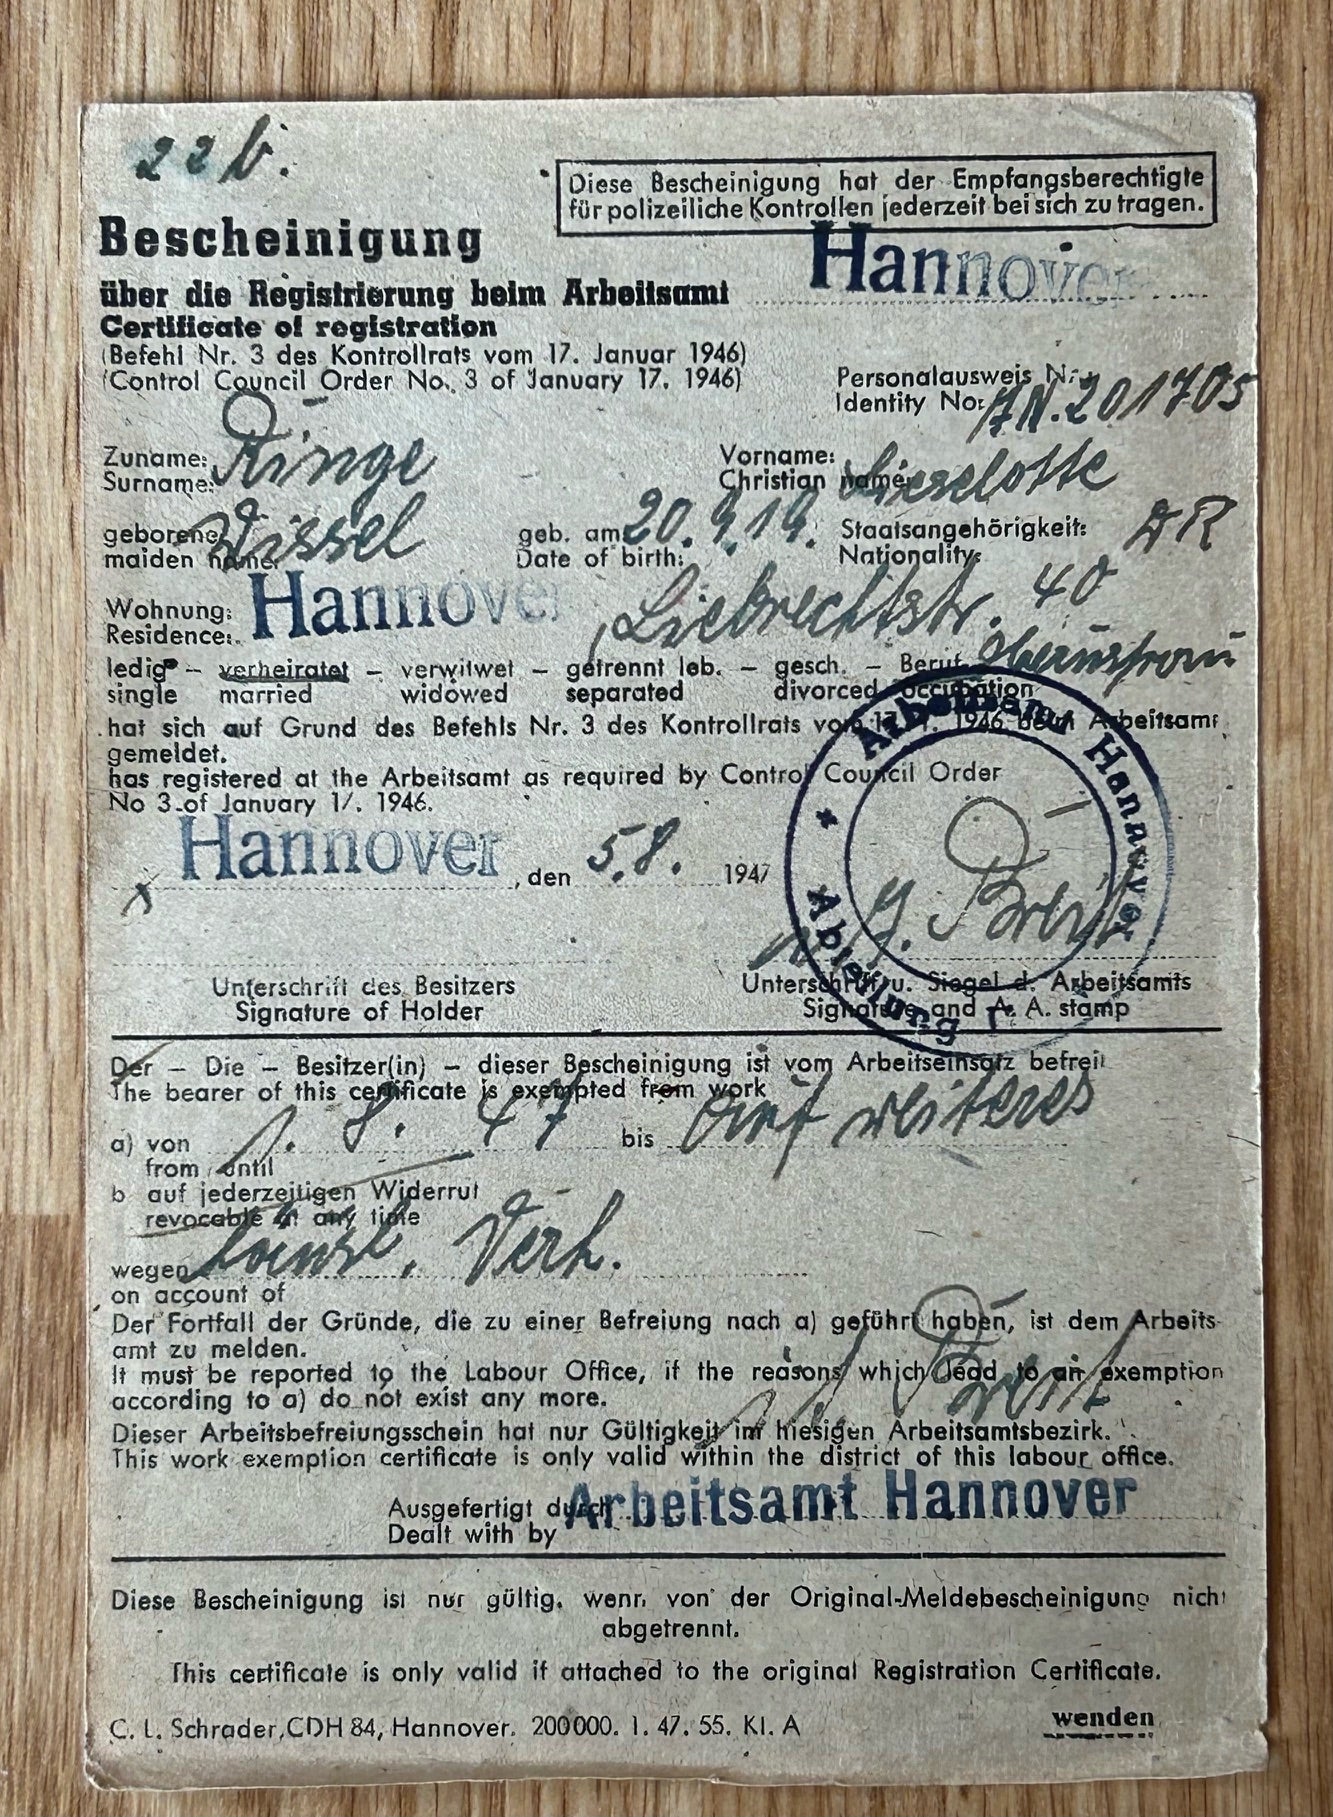 22 b.
Diese Bescheinigung hat der Empfangsberechtigte
für polizeiliche Kontrollen jederzeit bei sich zu tragen.
Bescheinigung
Hannover
über die Registrierung beim Arbeitsamt
Certificate of registration
(Befehl Nr. 3 des Kontrollrats vom 17. Januar 1946)
(Control Council Order No. 3 of January 17. 1946)
Personalausweis Nr.
Identity No: AN. 201705
Zuname: Ringe
Surname:
Vorname: Lieselotte
Christian name:
geborene Dissel
maiden name:
geb. am 20.9.19.
Date of birth:
Staatsangehörigkeit: DR
Nationality:
Wohnung: Hannover, Liebrechtstr. 40
Residence:
ledig – verheiratet – verwitwet – getrennt leb. – gesch. – Beruf
single married widowed separated divorced occupation
hat sich auf Grund des Befehls Nr. 3 des Kontrollrats vom 17. 1. 1946 beim Arbeitsamt
gemeldet.
has registered at the Arbeitsamt as required by Control Council Order
No 3 of January 17. 1946.
Hannover, den 5.8. 1947
x
Arbeitsamt Hannover
Abteilung
Unterschrift des Besitzers
Signature of Holder
Unterschrift u. Siegel d. Arbeitsamts
Signature and A. A. stamp
Der – Die – Besitzer(in) – dieser Bescheinigung ist vom Arbeitseinsatz befreit
The bearer of this certificate is exempted from work
a) von 1. 8. 47 bis auf weiteres
from until
b auf jederzeitigen Widerruf
revocable at any time
wegen häusl. Verh.
on account of
Der Fortfall der Gründe, die zu einer Befreiung nach a) geführt haben, ist dem Arbeits-
amt zu melden.
It must be reported to the Labour Office, if the reasons which lead to an exemption
according to a) do not exist any more.
Dieser Arbeitsbefreiungsschein hat nur Gültigkeit im hiesigen Arbeitsamtsbezirk.
This work exemption certificate is only valid within the district of this labour office.
Ausgefertigt durch Arbeitsamt Hannover
Dealt with by
Diese Bescheinigung ist nur gültig, wenn von der Original-Meldebescheinigung nicht
abgetrennt.
This certificate is only valid if attached to the original Registration Certificate.
C. L. Schrader, CDH 84, Hannover. 200000. 1. 47. 55. Kl. A
wenden